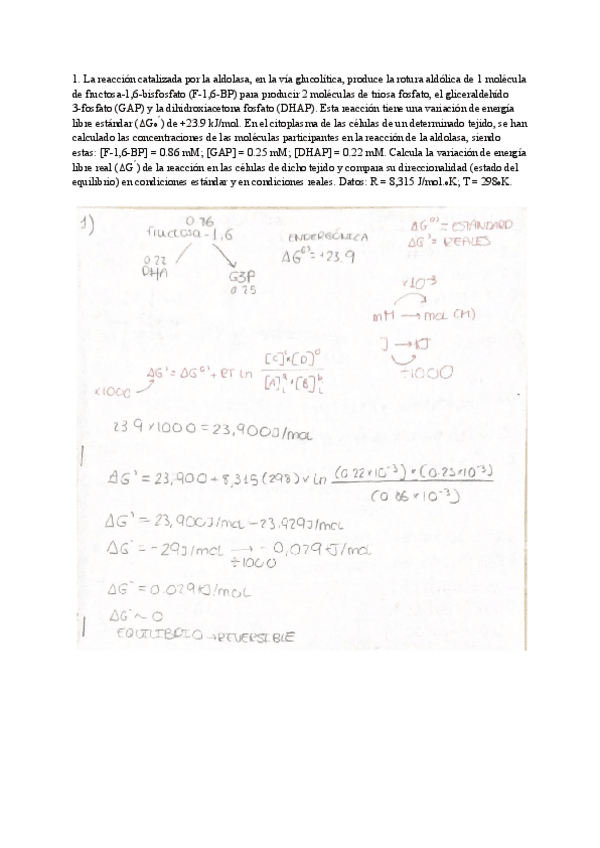 1. La reacción catalizada por la aldolasa, en la vía glucolítica, produce la rotura aldólica de 1 molécula
de fructosa-1,6-bisfosfato (F-1,6-BP) para producir 2 moléculas de triosa fosfato, el gliceraldehido
3-fosfato (GAP) y la dihidroxiacetona fosfato (DHAP). Esta reacción tiene una variación de energía
libre estándar (ΔGₒ´) de +23.9 kJ/mol. En el citoplasma de las células de un determinado tejido, se han
calculado las concentraciones de las moléculas participantes en la reacción de la aldolasa, siendo
estas: [F-1,6-BP] = 0.86 mM; [GAP] = 0.25 mM; [DHAP] = 0.22 mM. Calcula la variación de energía
libre real (ΔG´) de la reacción en las células de dicho tejido y compara su direccionalidad (estado del
equilibrio) en condiciones estándar y en condiciones reales. Datos: R = 8,315 J/mol.ₒK; T = 298ₒK.
1)
fructosa-1,6
ENDERGÓNICA
ΔG°'= ESTÁNDARD
ΔG'= REALES
ΔG°'= +23.9
0.22
DHA
G3P
0.25
×10⁻³
mM → mol (M)
J → KJ
÷1000
ΔG'= ΔG°'+ RT ln [C]ᶜ×[D]ᵈ
[A]ᵃ×[B]ᵇ
×1000
23.9 × 1000 = 23,900 J/mol
ΔG'= 23,900 + 8,315 (298) × ln (0.22×10⁻³) × (0.25×10⁻³)
(0.86 ×10⁻³)
ΔG'= 23,900 J/mol - 23,929 J/mol
ΔG'= -29 J/mol → - 0,029 KJ/mol
÷1000
ΔG'= 0.029 KJ/mol
ΔG' ~ 0
EQUILIBRIO → REVERSIBLE